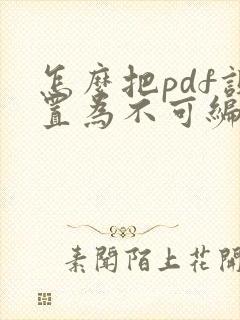 怎麼把pdf設
置為不可編
素聞陌上花開